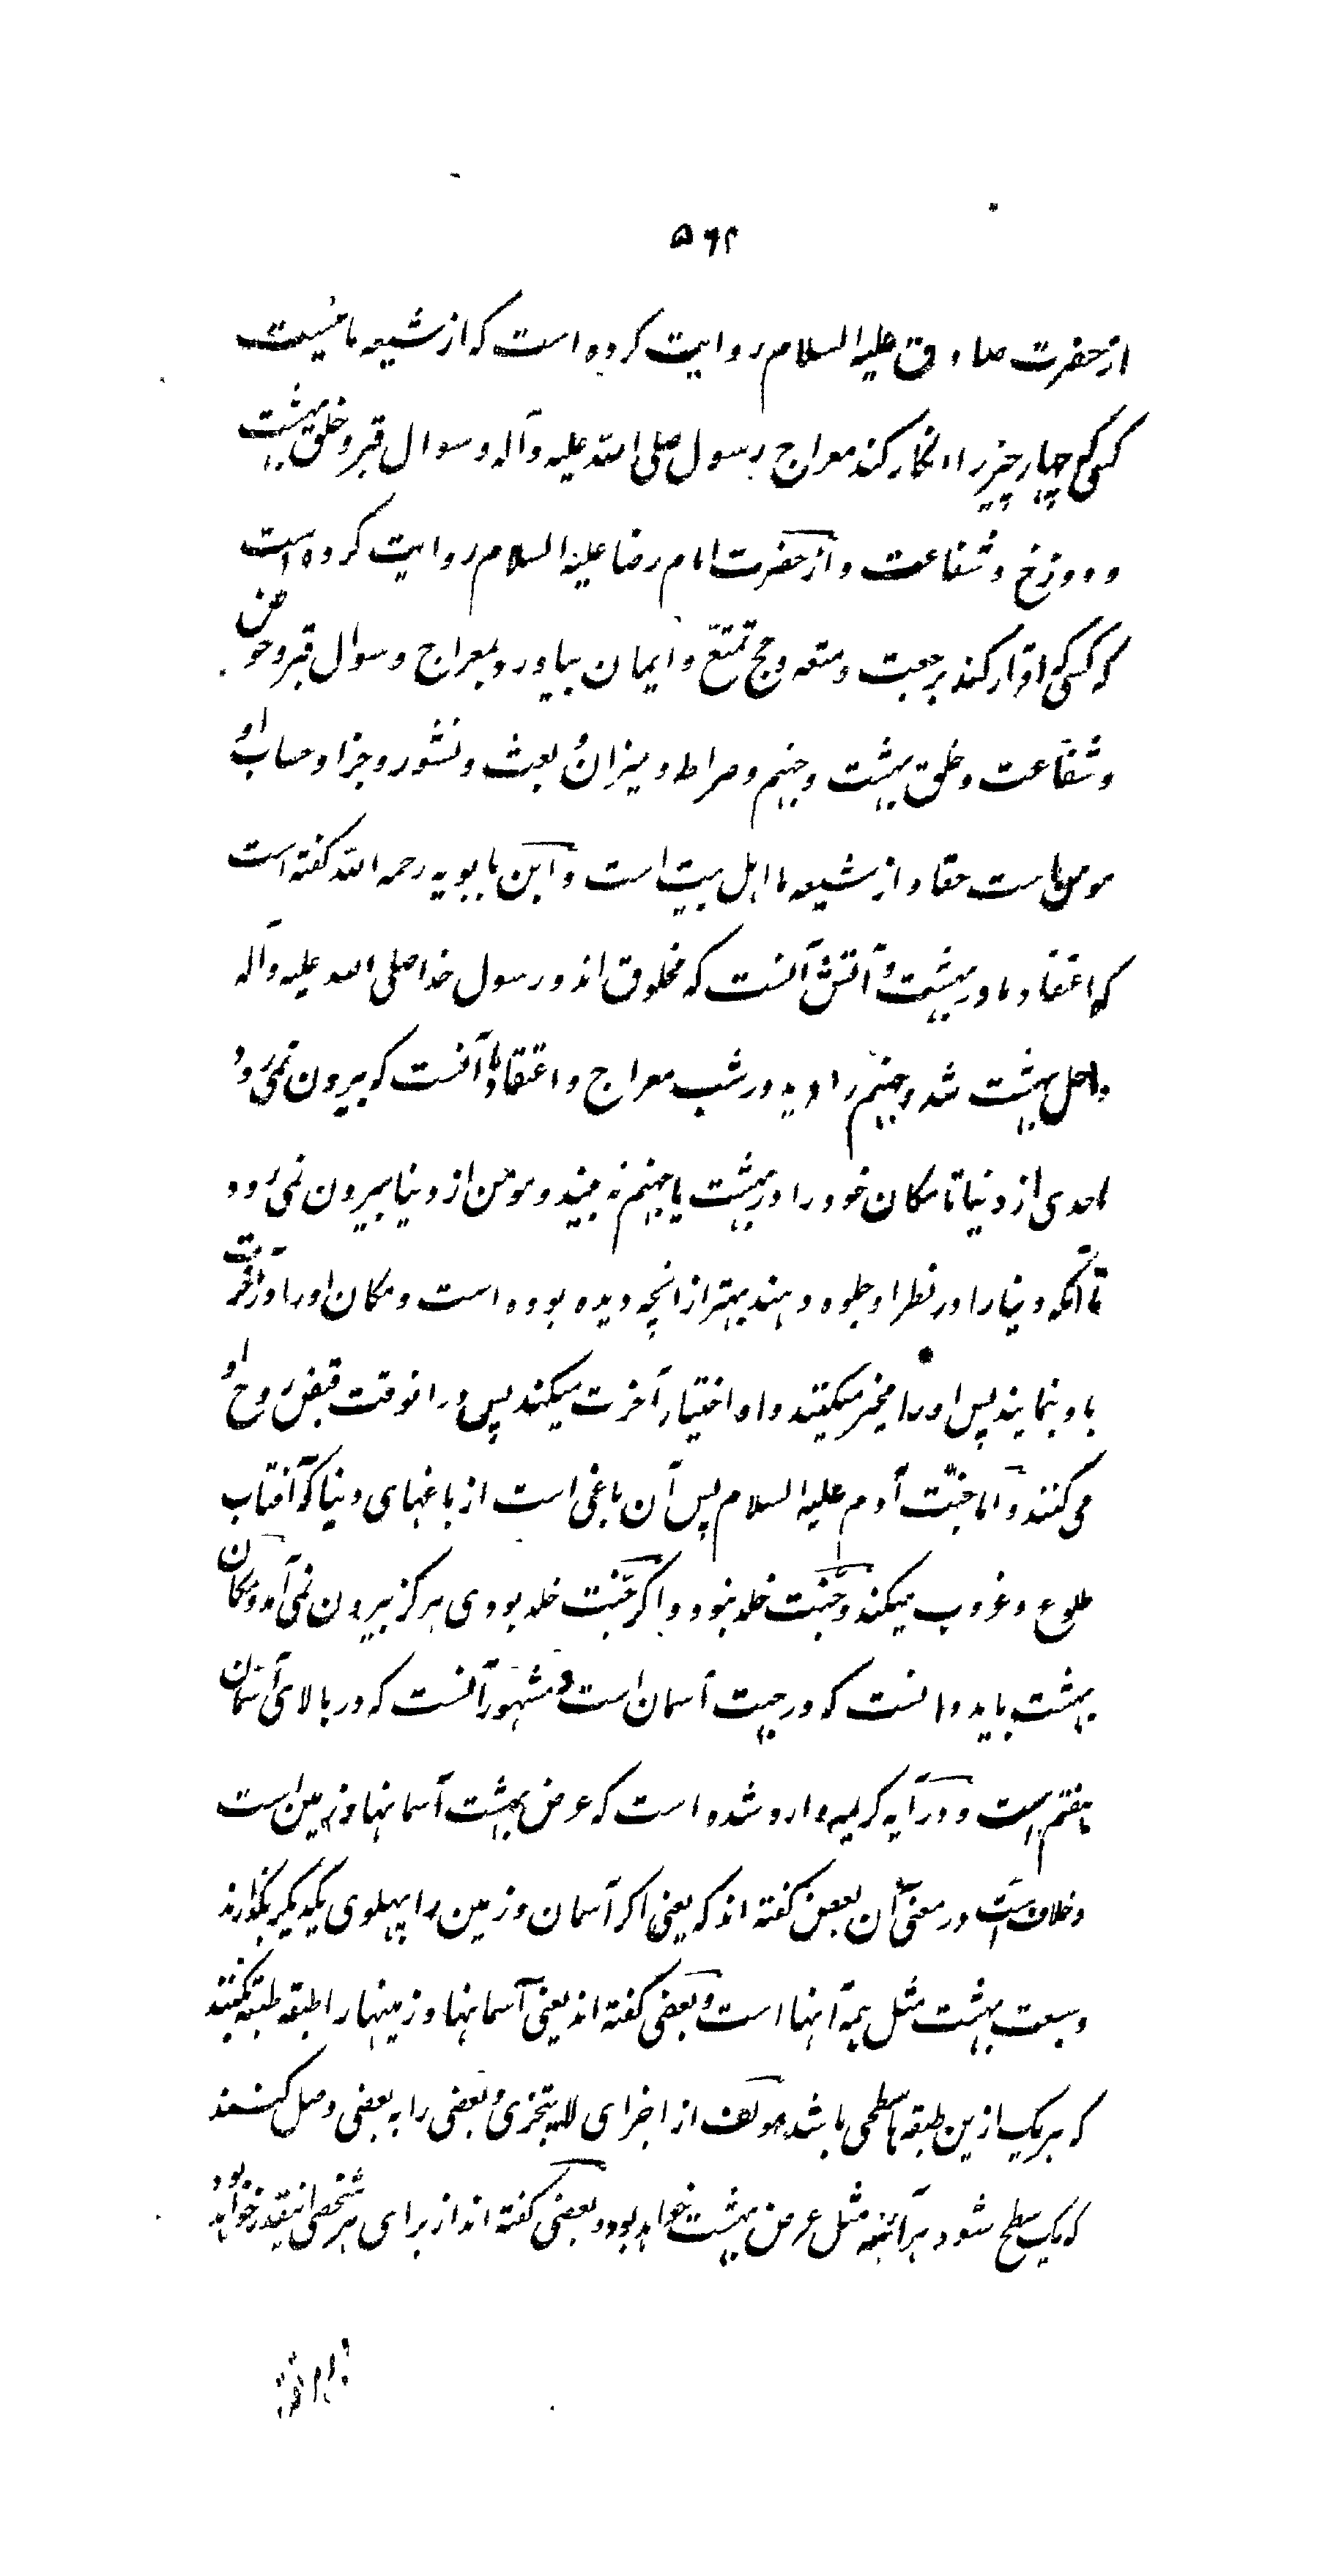 ۵۶۲
از حضرت صادق علیه السلام روایت کرده است که از شیعه ما نیست
کسی که چهار چیز را انکار کند معراج رسول صلی الله علیه وآله و سوال قبر و خلق بهشت
و دوزخ و شفاعت و از حضرت امام رضا علیه السلام روایت کرده است
که کسی که اقرار کند برجعت و متعه و حج تمتع و ایمان بیاورد بمعراج و سوال قبر و حوض
و شفاعت و خلق بهشت و جهنم و صراط و میزان و بعث و نشور و جزا و حساب او
مومن است حقا و از شیعه ما اهل بیت است و ابن بابویه رحمه الله گفته است
که اعتقاد ما در بهشت و آتش آنست که مخلوق اند و رسول خدا صلی الله علیه وآله
داخل بهشت شد و جهنم را دید در شب معراج و اعتقاد ما آنست که بیرون نمی رود
احدی از دنیا تا مکان خود را در بهشت یا جهنم نه بیند و مومن از دنیا بیرون نمی رود
تا آنکه دنیا را در نظر او جلوه دهند بهتر از انچه دیده بوده است و مکان او را در آخرت
باو بنمایند پس او را مخیر میکنند و او اختیار آخرت میکند پس در انوقت قبض روح او
می کنند و اما جنت آدم علیه السلام پس آن باغی است از باغهای دنیا که آفتاب
طلوع و غروب میکند و جنت خلد نبود و اگر جنت خلد بودی هرگز بیرون نمی آمد و مکان
بهشت باید دانست که در جهت آسمان است و مشهور آنست که در بالای آسمان
هفتم است و در آیه کریمه وارد شده است که عرض بهشت آسمانها و زمین است
و خلاف است در معنی آن بعض گفته اند که یعنی اگر آسمان و زمین را پهلوی یکدیگر بگذارند
وسعت بهشت مثل همه آنها است و بعضی گفته اند یعنی آسمانها و زمینها را طبقه طبقه کنند
که هر یک ازین طبقه ها سطحی باشد مولف از اجزای لایتجزی و بعضی را به بعضی وصل کنند
که یک سطح شود هر آئینه مثل عرض بهشت خواهد بود و بعضی گفته اند از برای هر شخصی اینقدر خواهد بود